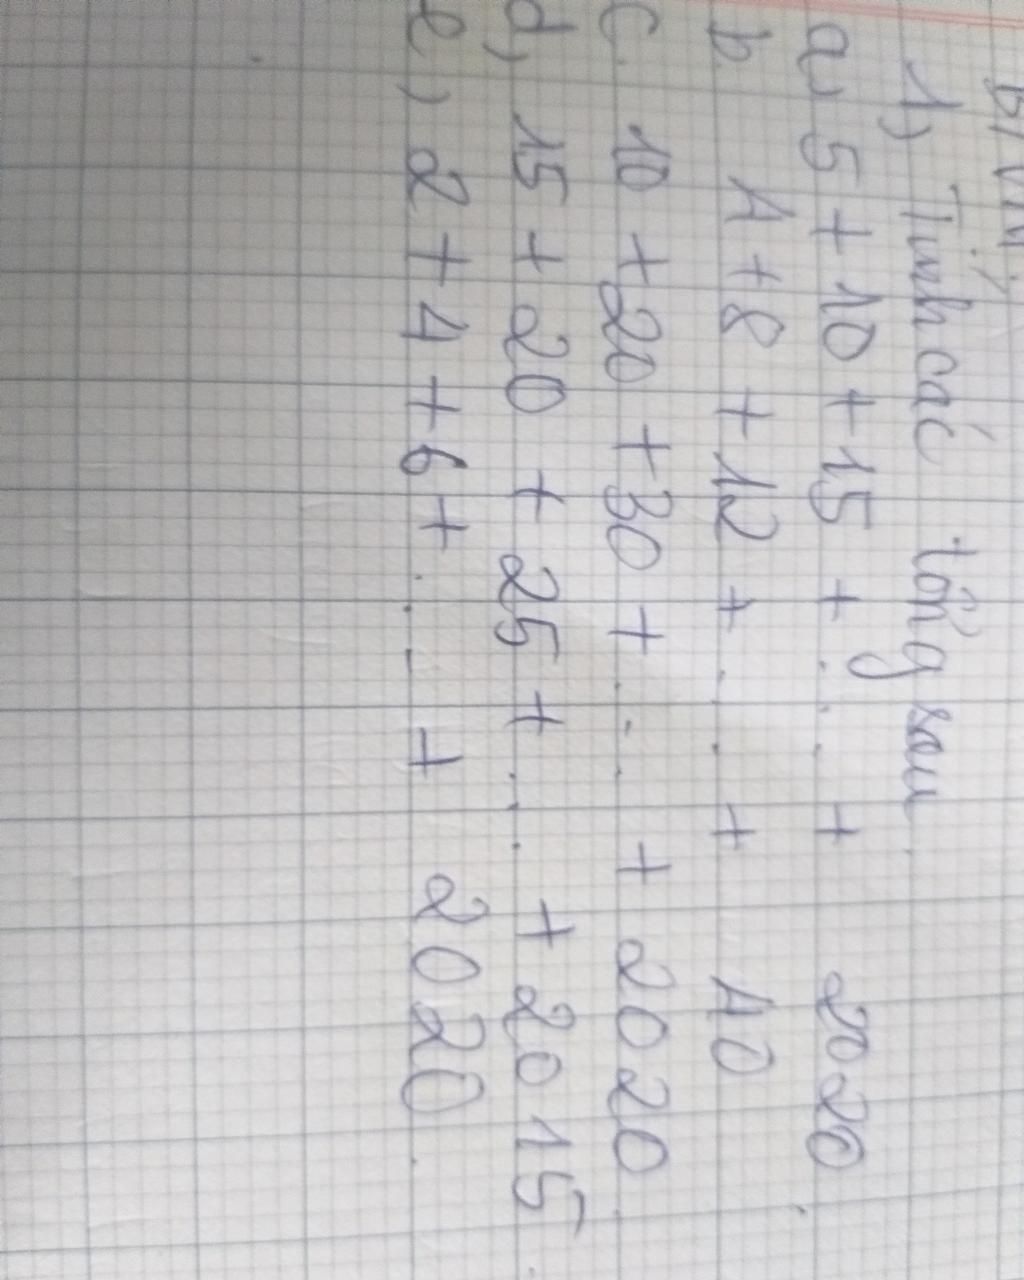 1) Tính các tổng sau
a) 5 + 10 + 15 + . . . + 2020
b 4 + 8 + 12 + . . . + 40
c. 10 + 20 + 30 + . . . + 2020
d, 15 + 20 + 25 + . . . + 2015
e) 2 + 4 + 6 + . . . + 2020.